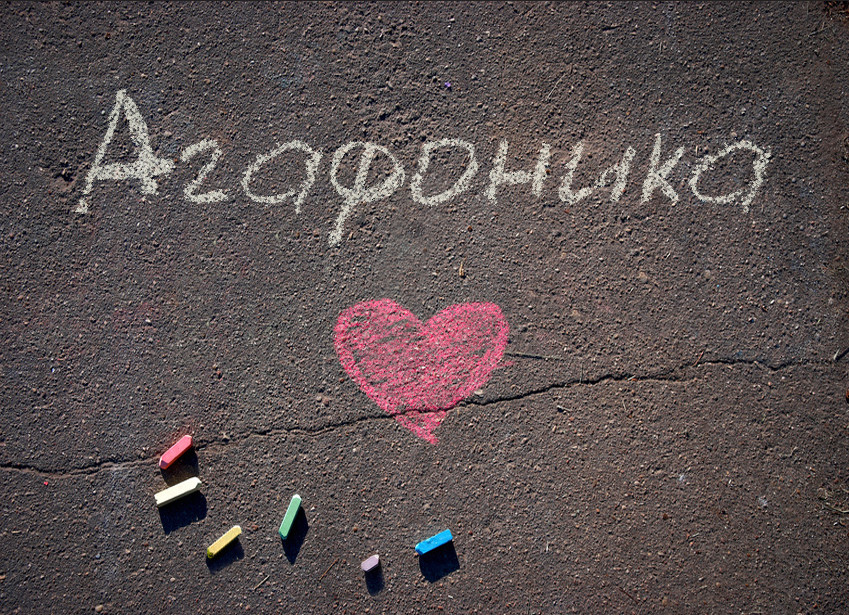 Агафоника